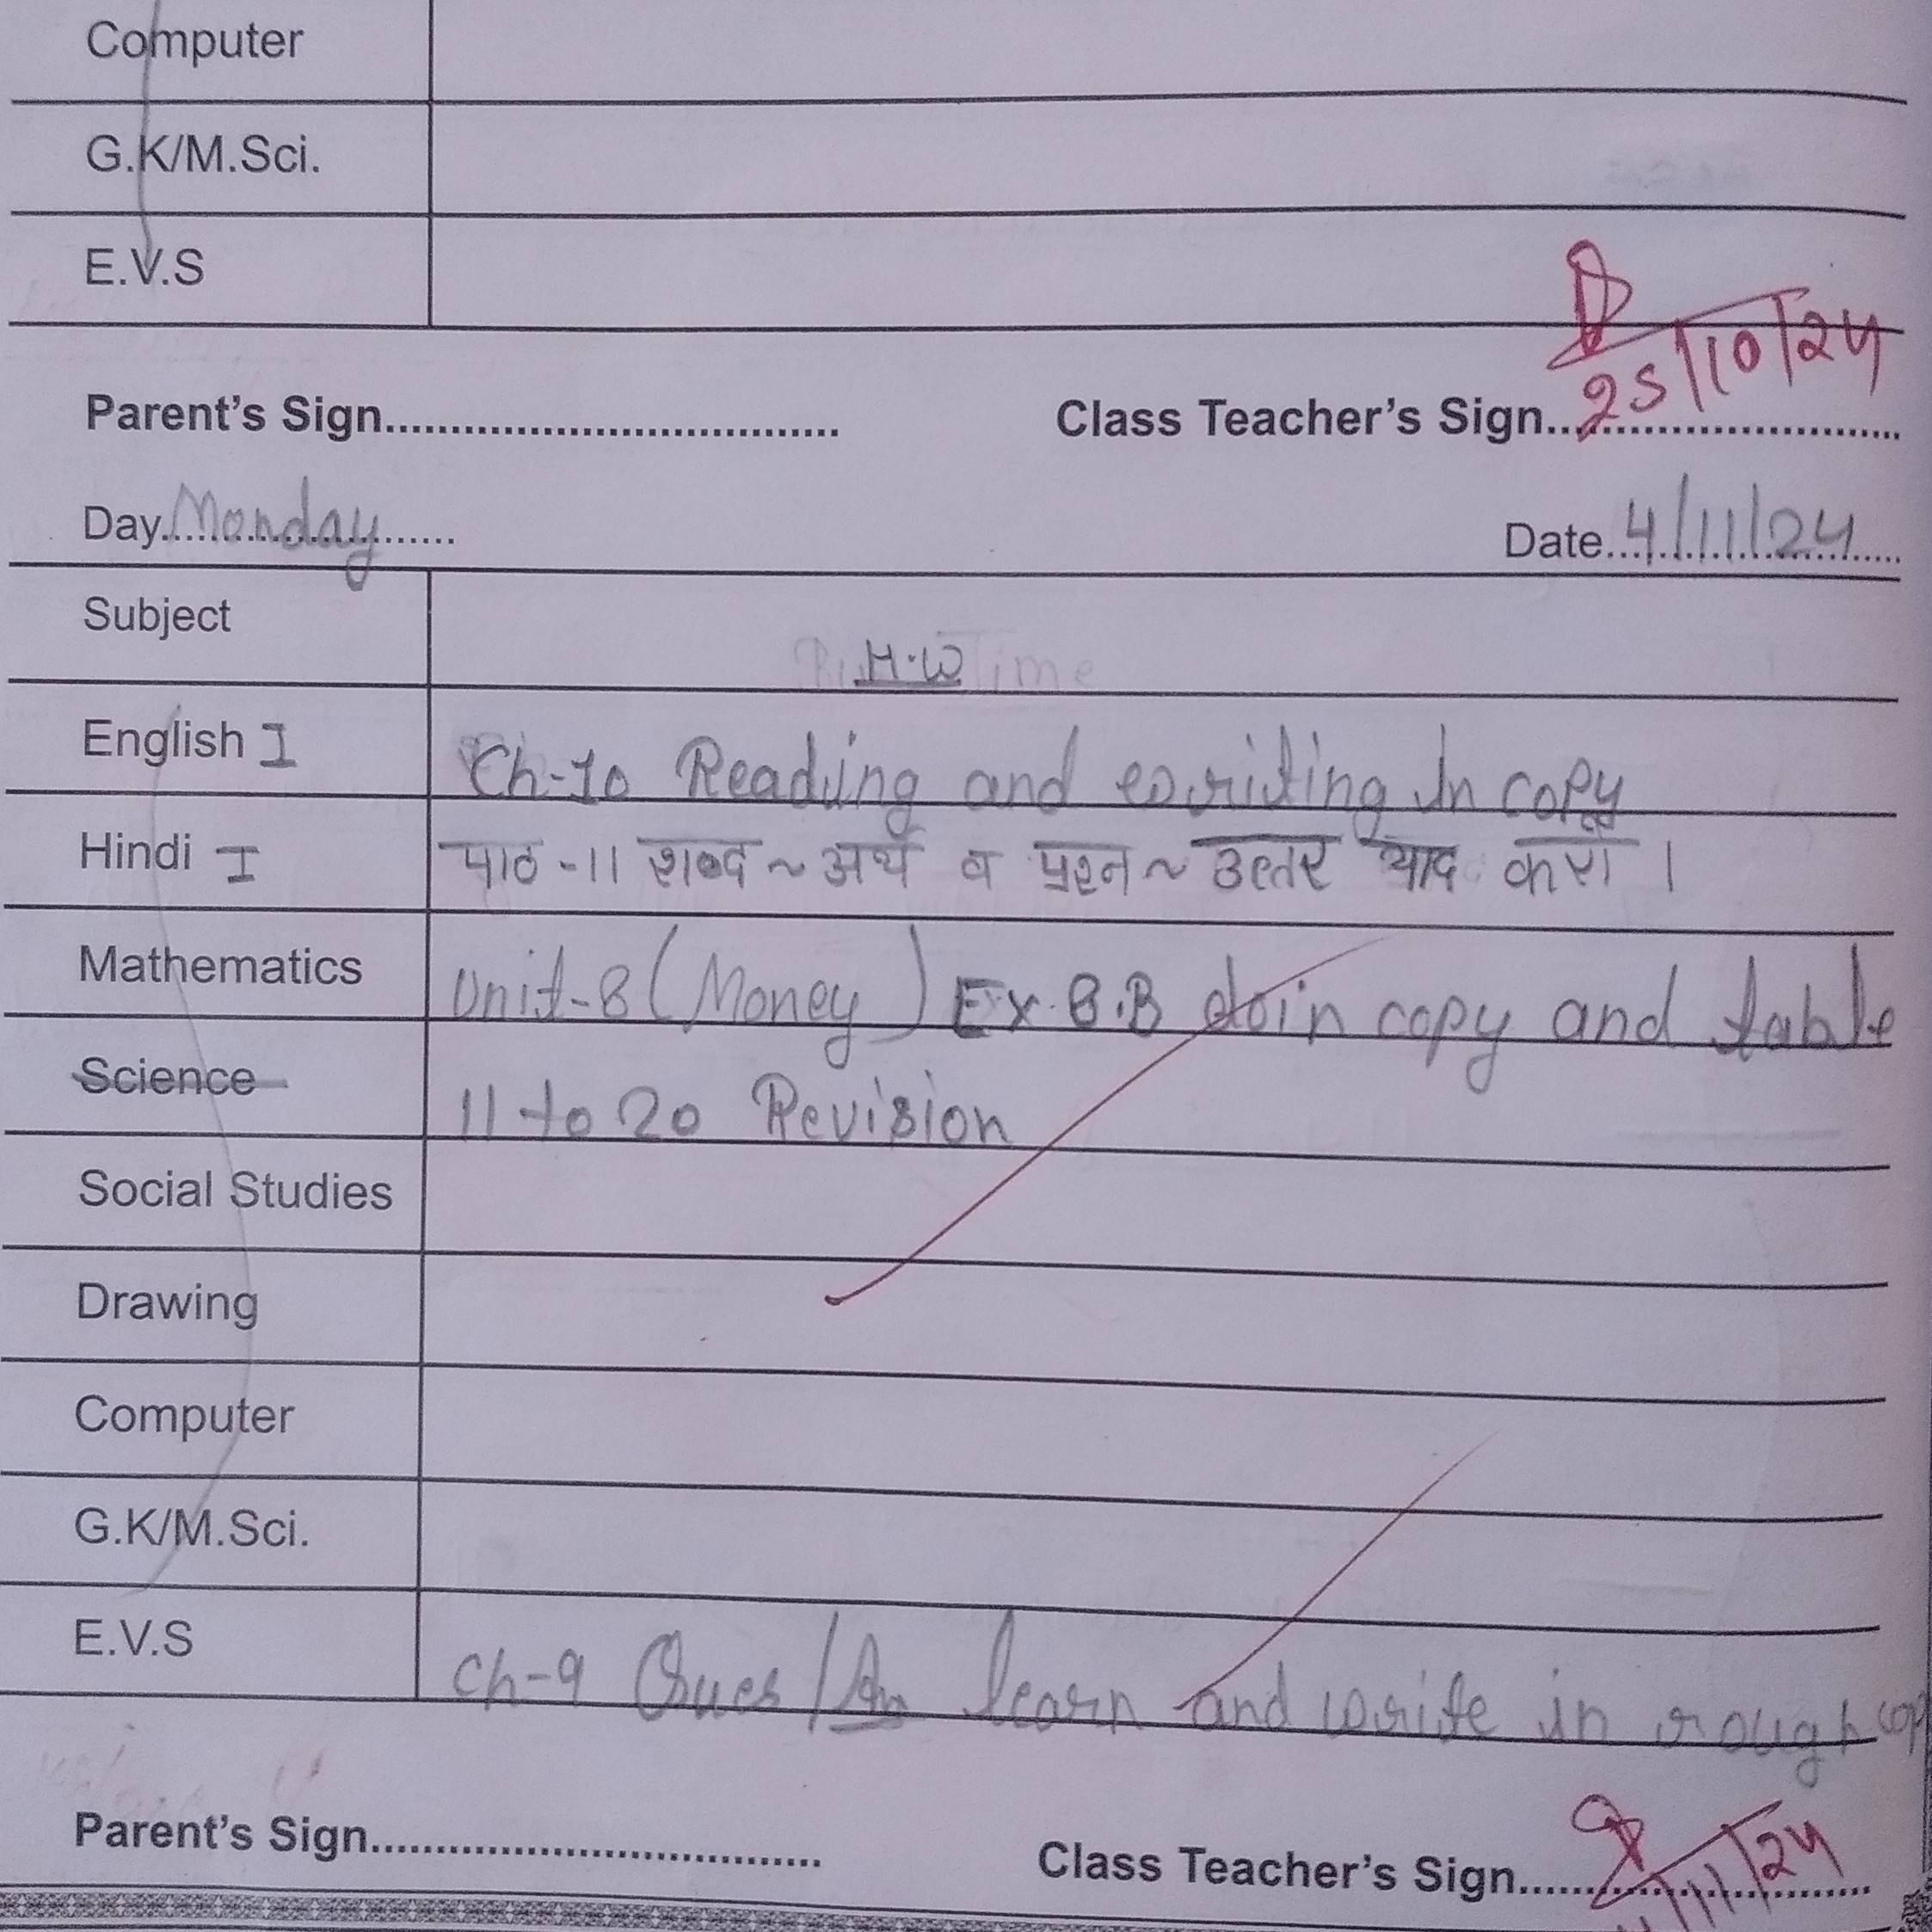 Computer
G.K/M.Sci.
E.V.S
25/10/24
Parent's Sign................................... Class Teacher's Sign...........................
Day.Monday...... Date.4/11/24...
Subject H.W
English I Ch-10 Reading and writing in copy
Hindi I पाठ -11 शब्द ~ अर्थ व प्रश्न ~ उत्तर याद करो ।
Mathematics Unit-8 (Money) Ex. 8.B do in copy and table
Science 11 to 20 Revision
Social Studies
Drawing
Computer
G.K/M.Sci.
E.V.S Ch-9 Ques/An learn and write in rough cop
Parent's Sign................................... Class Teacher's Sign...........................
/11/24